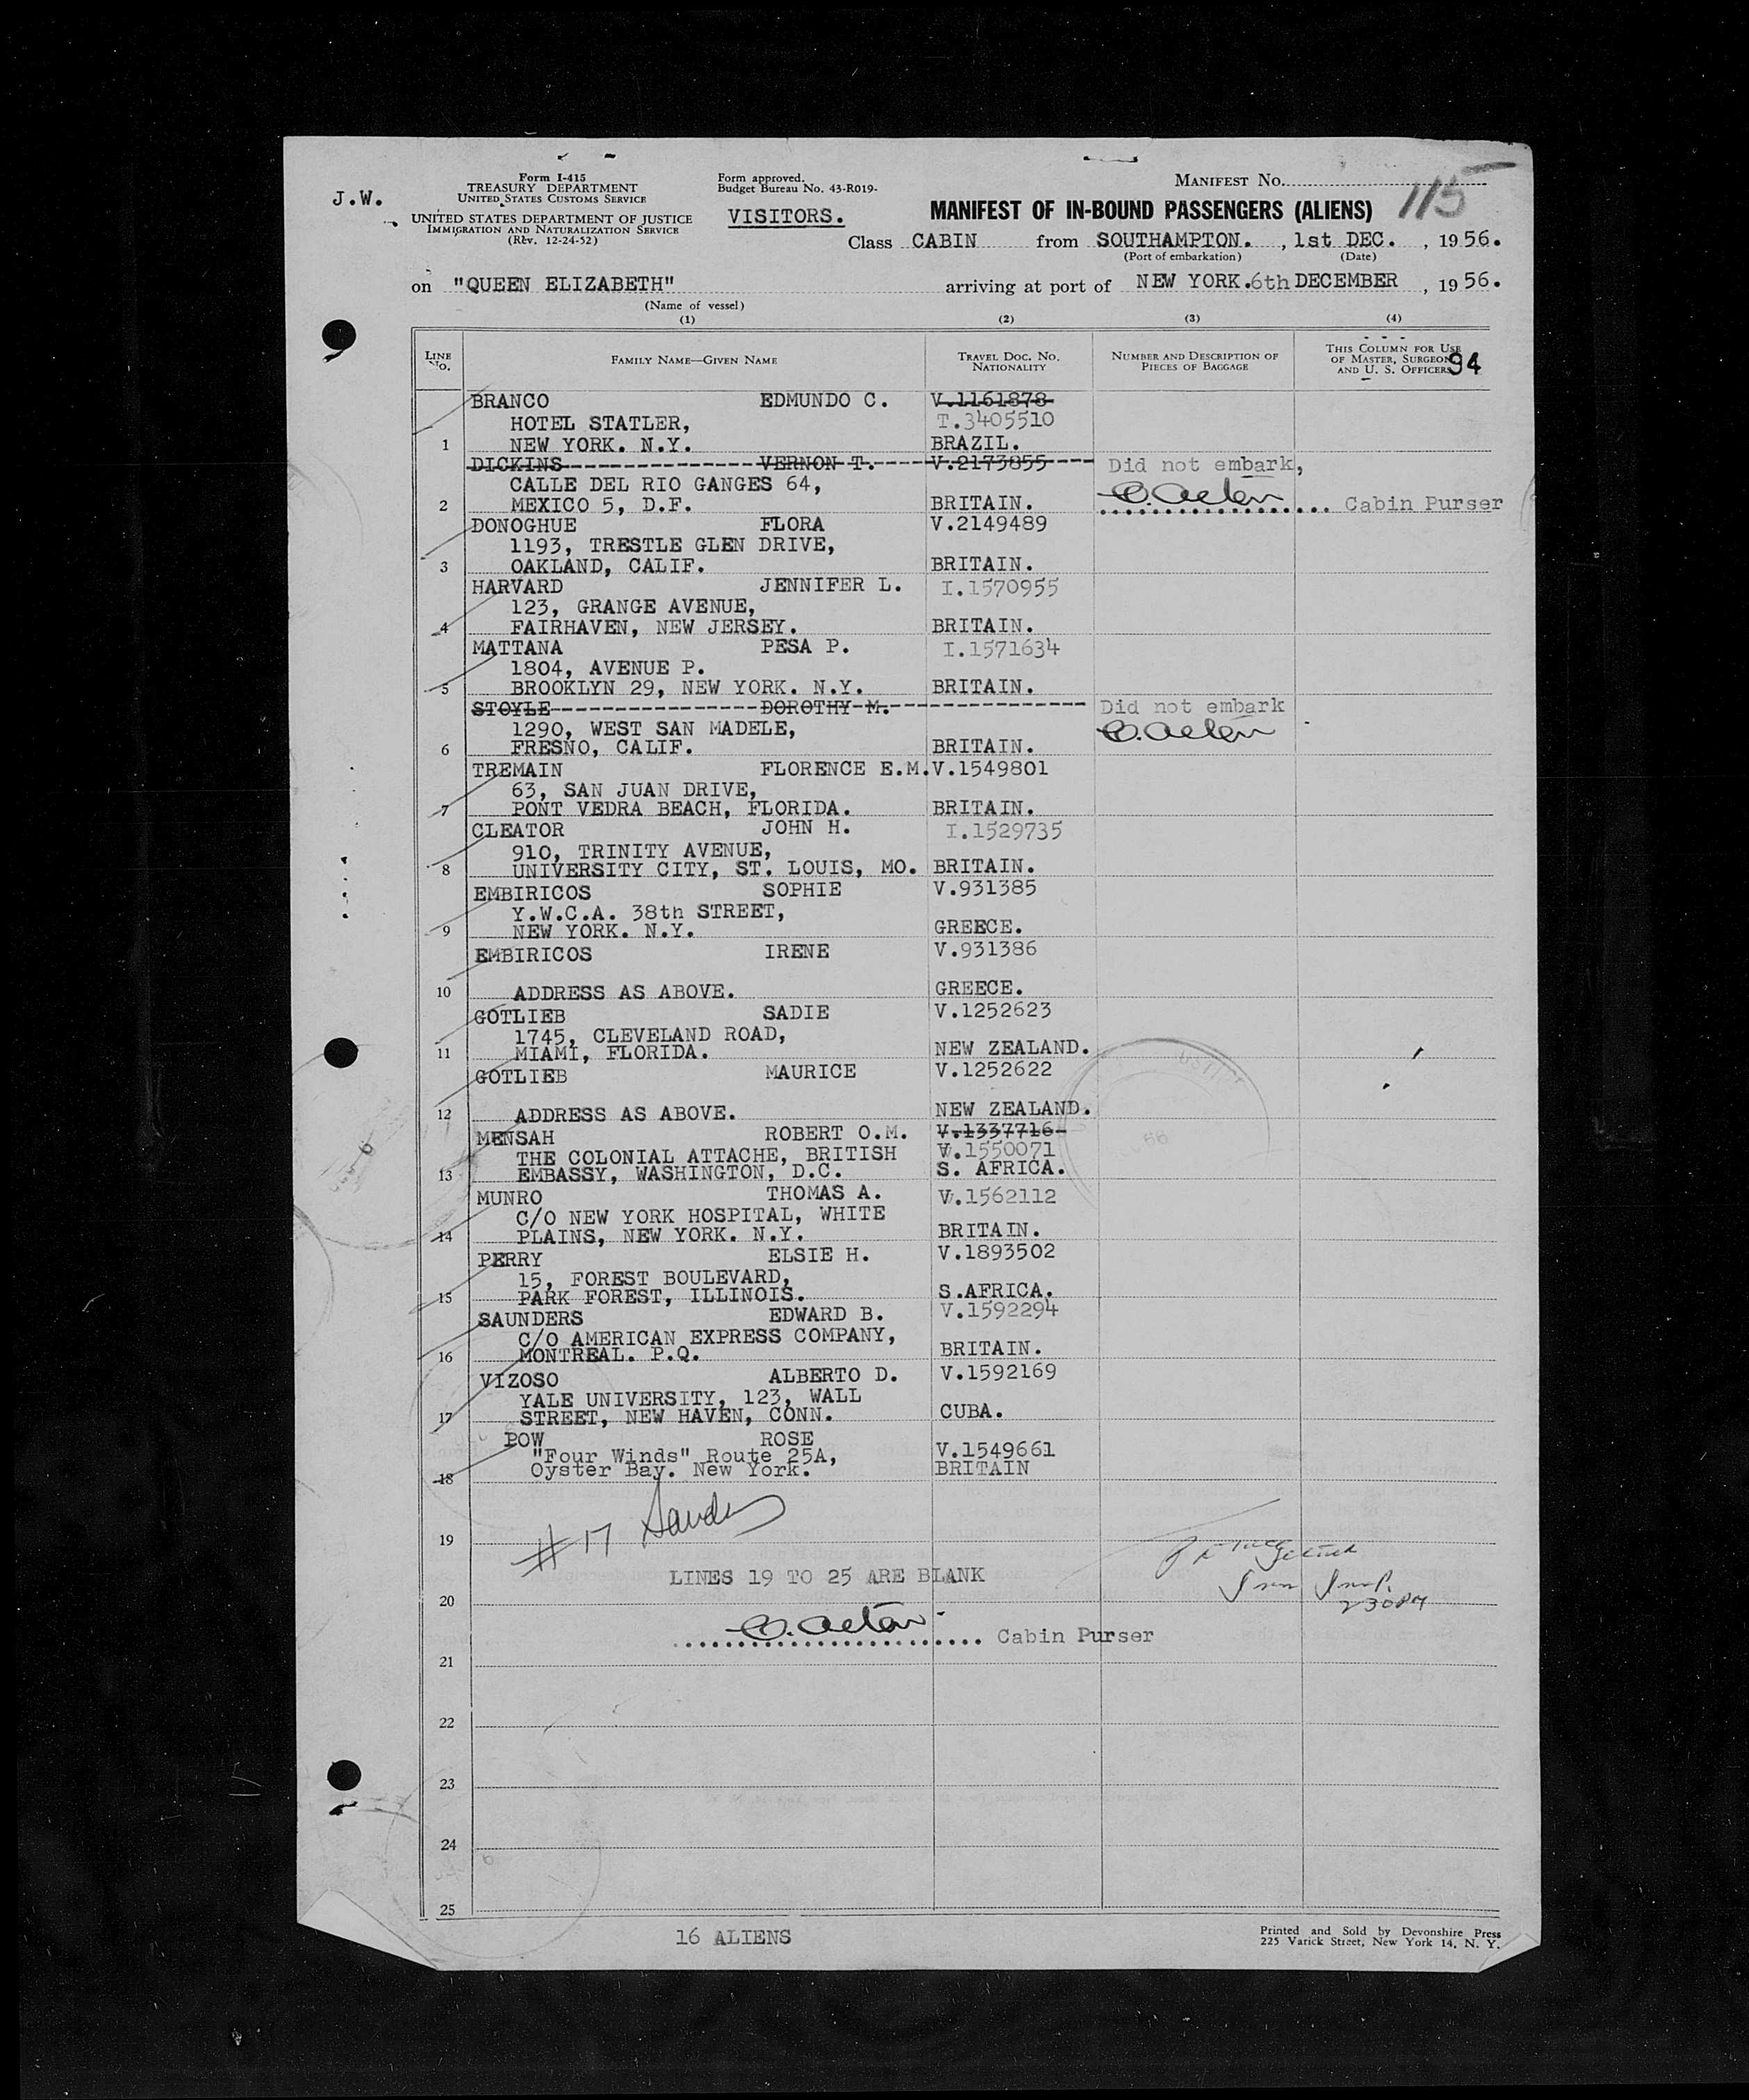 J.W.
Form I-415
TREASURY DEPARTMENT
UNITED STATES CUSTOMS SERVICE
UNITED STATES DEPARTMENT OF JUSTICE
IMMIGRATION AND NATURALIZATION SERVICE
(Rev. 12-24-52)
Form approved.
Budget Bureau No. 43-R019-
VISITORS.
MANIFEST NO.
115
MANIFEST OF IN-BOUND PASSENGERS (ALIENS)
Class CABIN from SOUTHAMPTON. , 1st DEC. , 1956.
(Port of embarkation) (Date)
on "QUEEN ELIZABETH" arriving at port of NEW YORK. 6th DECEMBER , 1956.
(Name of vessel)
(1) (2) (3) (4)
LINE NO. FAMILY NAME—GIVEN NAME TRAVEL DOC. NO. NATIONALITY NUMBER AND DESCRIPTION OF PIECES OF BAGGAGE THIS COLUMN FOR USE OF MASTER, SURGEON, AND U. S. OFFICERS
94
BRANCO EDMUNDO C. V.1161878
HOTEL STATLER, T.3405510
1 NEW YORK. N.Y. BRAZIL.
DICKINS VERNON T. V.2173855 Did not embark,
CALLE DEL RIO GANGES 64,
2 MEXICO 5, D.F. BRITAIN. Cabin Purser
DONOGHUE FLORA V.2149489
1193, TRESTLE GLEN DRIVE,
3 OAKLAND, CALIF. BRITAIN.
HARVARD JENNIFER L. I.1570955
123, GRANGE AVENUE,
4 FAIRHAVEN, NEW JERSEY. BRITAIN.
MATTANA PESA P. I.1571634
1804, AVENUE P.
5 BROOKLYN 29, NEW YORK. N.Y. BRITAIN.
STOYLE DOROTHY M. Did not embark
1290, WEST SAN MADELE,
6 FRESNO, CALIF. BRITAIN.
TREMAIN FLORENCE E.M. V.1549801
63, SAN JUAN DRIVE,
7 PONT VEDRA BEACH, FLORIDA. BRITAIN.
CLEATOR JOHN H. I.1529735
910, TRINITY AVENUE,
8 UNIVERSITY CITY, ST. LOUIS, MO. BRITAIN.
EMBIRICOS SOPHIE V.931385
Y.W.C.A. 38th STREET,
9 NEW YORK. N.Y. GREECE.
EMBIRICOS IRENE V.931386
10 ADDRESS AS ABOVE. GREECE.
GOTLIEB SADIE V.1252623
1745, CLEVELAND ROAD,
11 MIAMI, FLORIDA. NEW ZEALAND.
GOTLIEB MAURICE V.1252622
12 ADDRESS AS ABOVE. NEW ZEALAND.
MENSAH ROBERT O.M. V.1337716
THE COLONIAL ATTACHE, BRITISH V.1550071
13 EMBASSY, WASHINGTON, D.C. S. AFRICA.
MUNRO THOMAS A. V.1562112
C/O NEW YORK HOSPITAL, WHITE
14 PLAINS, NEW YORK. N.Y. BRITAIN.
PERRY ELSIE H. V.1893502
15, FOREST BOULEVARD,
15 PARK FOREST, ILLINOIS. S.AFRICA.
SAUNDERS EDWARD B. V.1592294
C/O AMERICAN EXPRESS COMPANY,
16 MONTREAL. P.Q. BRITAIN.
VIZOSO ALBERTO D. V.1592169
YALE UNIVERSITY, 123, WALL
17 STREET, NEW HAVEN, CONN. CUBA.
POW ROSE V.1549661
"Four Winds" Route 25A,
18 Oyster Bay. New York. BRITAIN
# 17
19
LINES 19 TO 25 ARE BLANK
230PM
20
Cabin Purser
21
22
23
24
25
16 ALIENS
Printed and Sold by Devonshire Press
225 Varick Street, New York 14, N. Y.